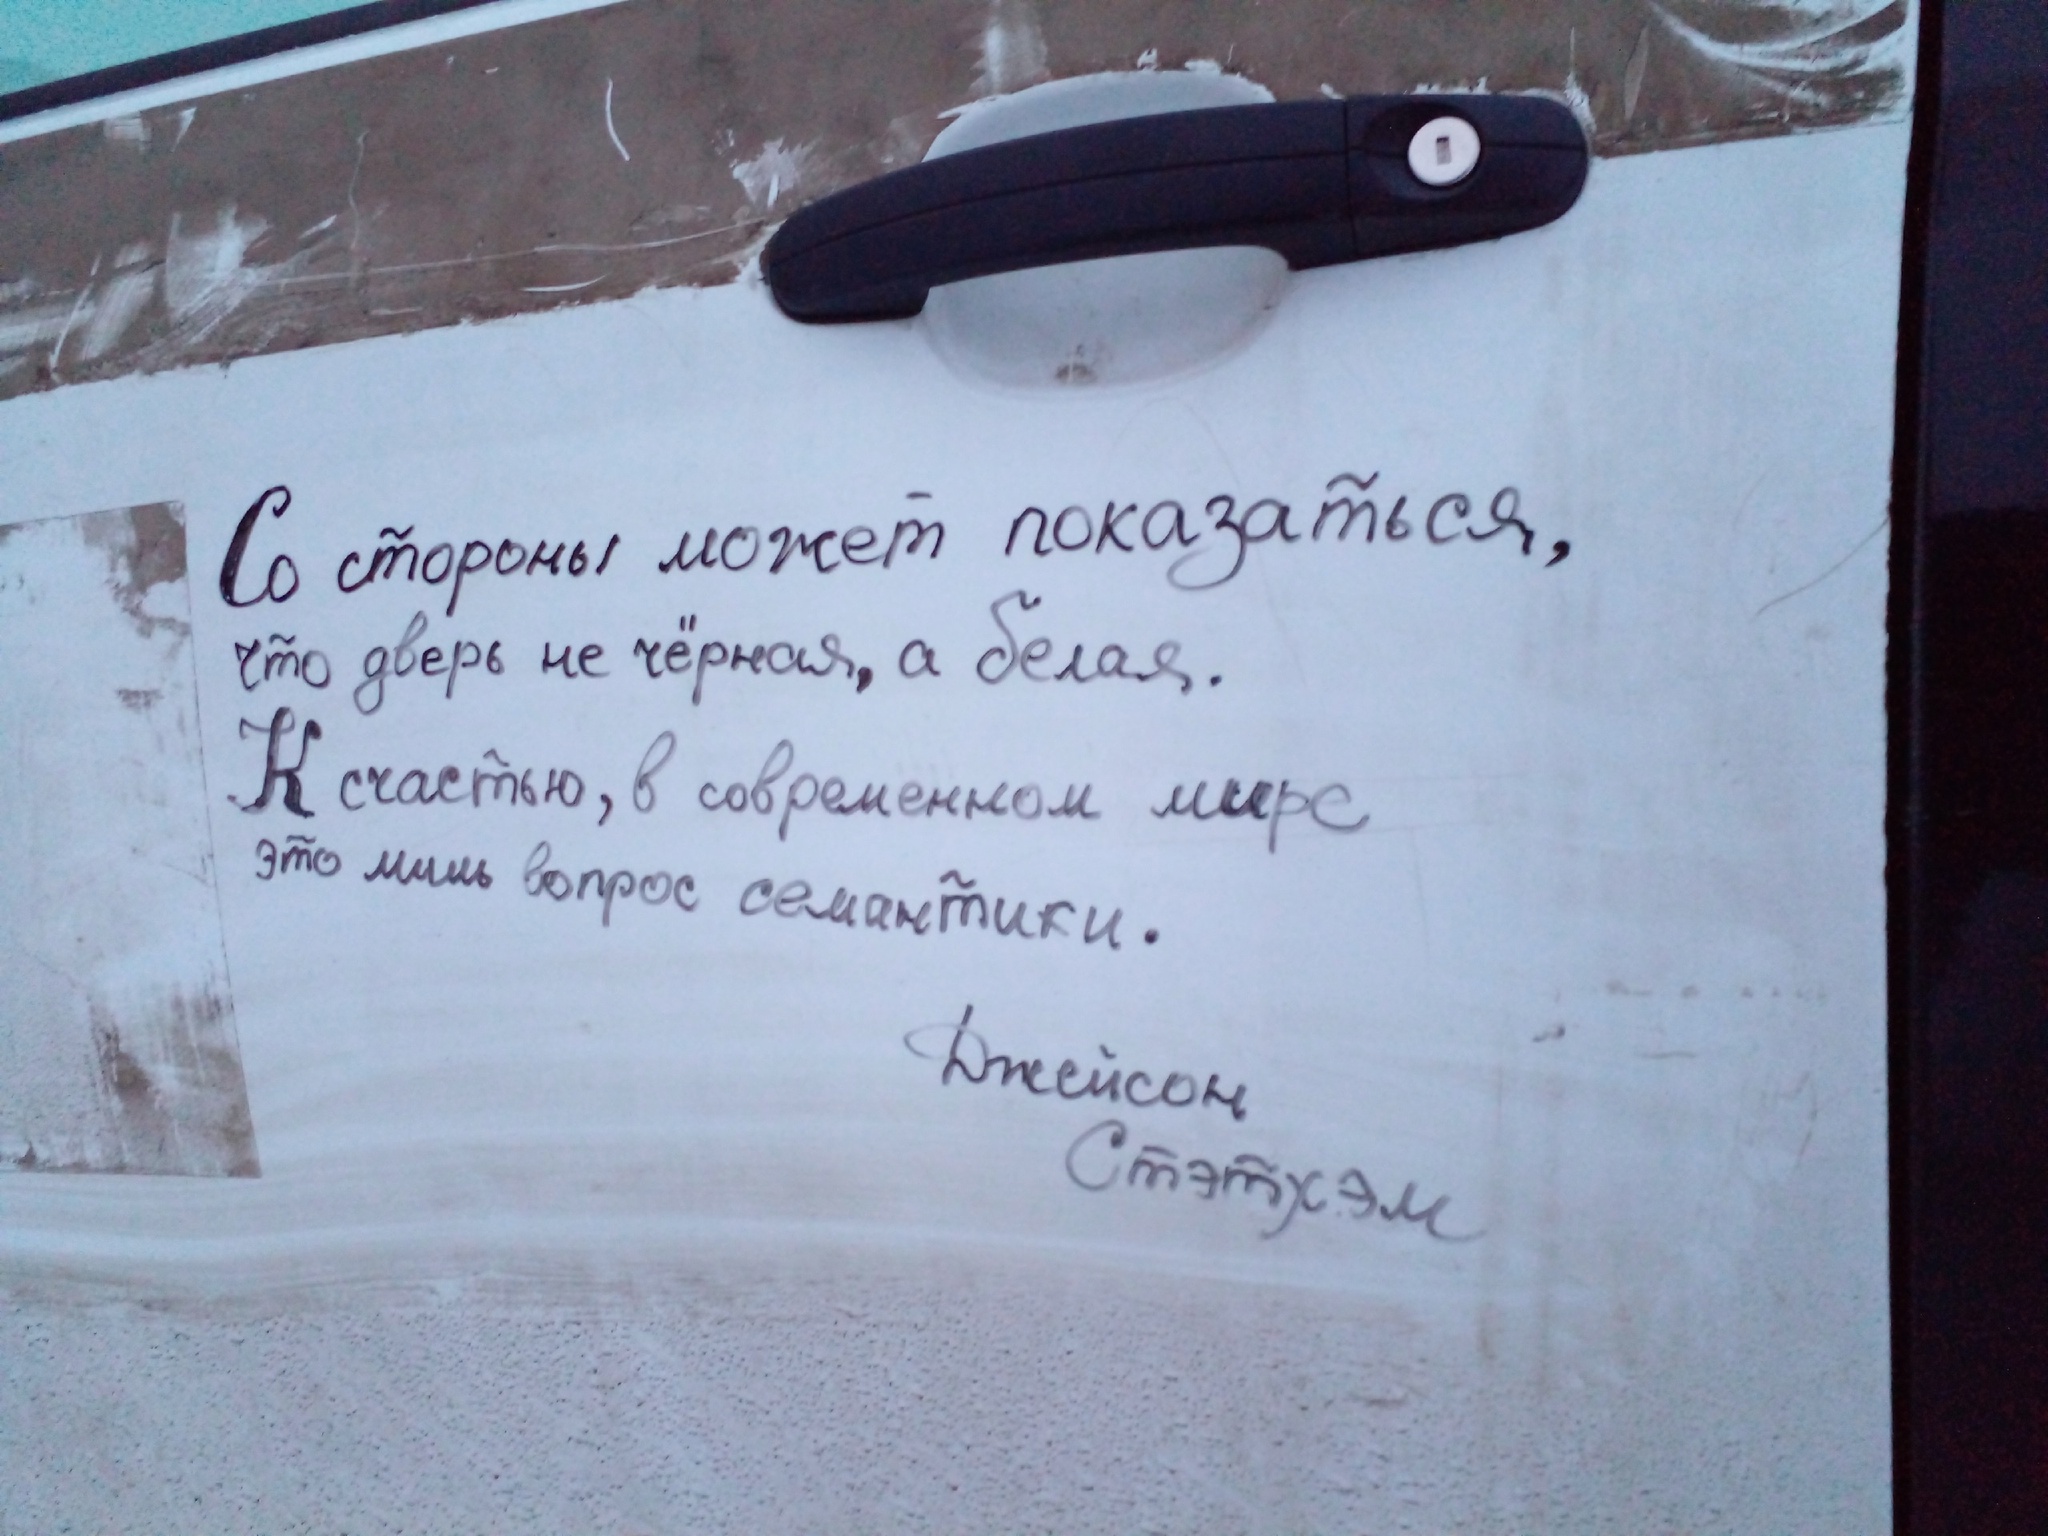 Со стороны может показаться,
что дверь не чёрная, а белая.
К счастью, в современном мире
это лишь вопрос семантики.
Джейсон
Стэтхэм